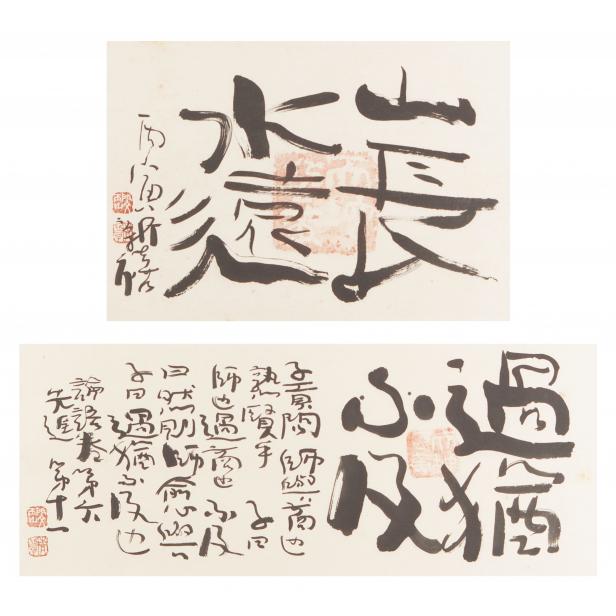 山長
水遠
丙寅
過猶
不及
子貢問師與商也
熟賢乎 子曰
師也過商也不及
曰然則師愈與
子曰過猶不及也
論語卷第六
先進 第十一